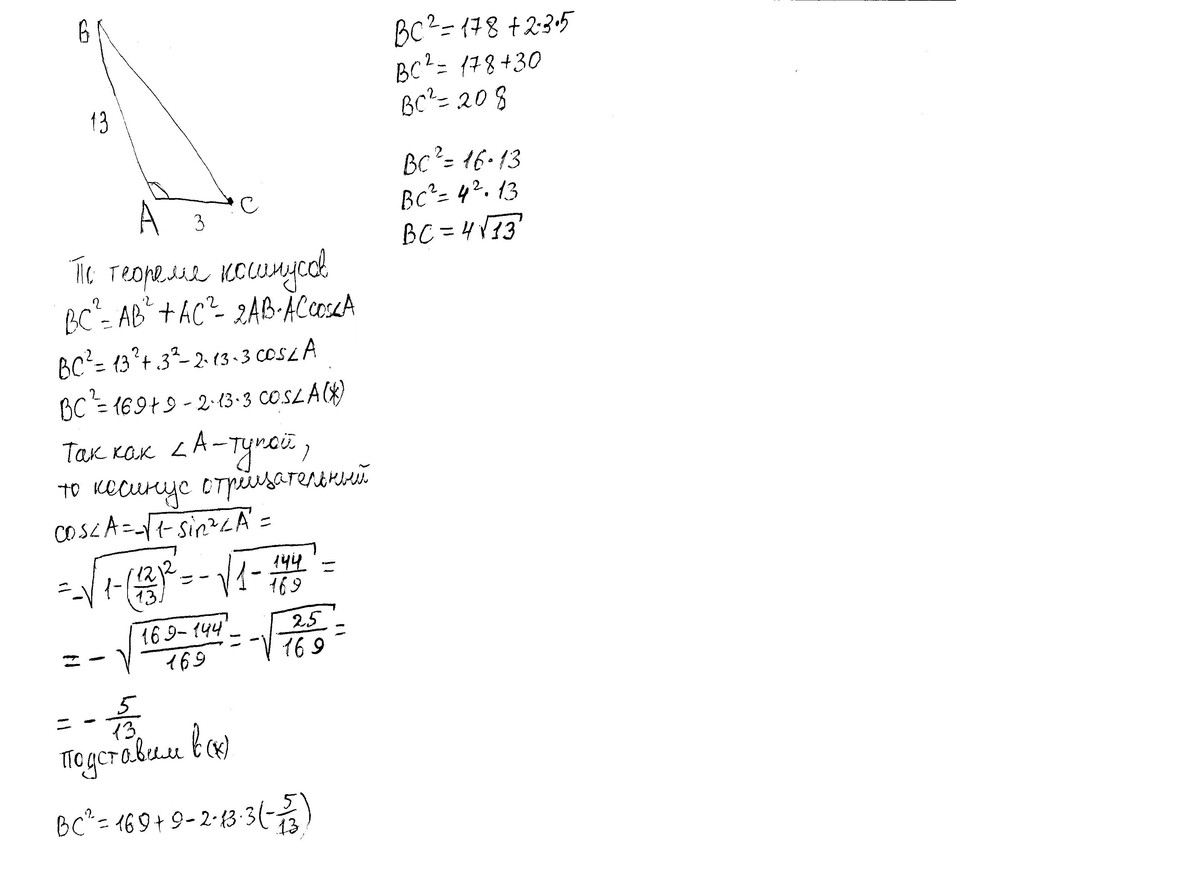 B
13
A
3
C
По теореме косинусов
BC²=AB²+AC²-2AB·ACcos∠A
BC²=13²+3²-2·13·3cos∠A
BC²=169+9-2·13·3cos∠A(*)
Так как ∠A-тупой,
то косинус отрицательный
cos∠A=-√(1-sin²∠A)=
=-√(1-(12/13)²)=-√(1-144/169)=
=-√((169-144)/169)=-√(25/169)=
=-5/13
подставим в(*)
BC²=169+9-2·13·3(-5/13)
BC²=178+2·3·5
BC²=178+30
BC²=208
BC²=16·13
BC²=4²·13
BC=4√13